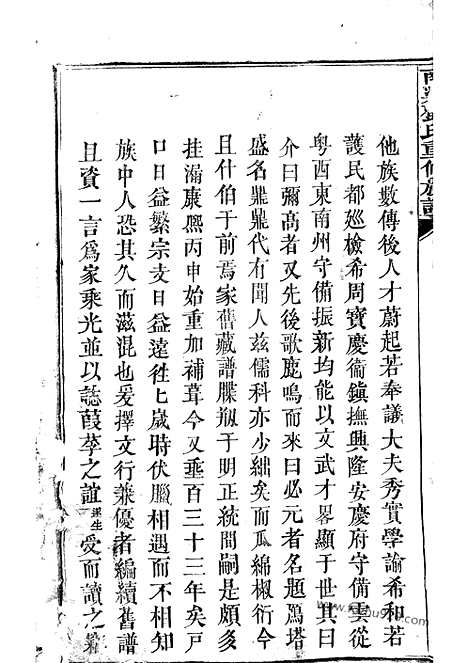 氏重修族譜
他族數傳後人才蔚起若奉議大夫秀實學諭希和若
護民都廵檢希周寶慶衞鎮撫興隆安慶府守備雲從
粵西東南州守備振新均能以文武才畧顯于世其曰
介曰彌高者又先後歌鹿鳴而來曰必元者名題鴈塔
盛名鼎鼎代有聞人兹儒科亦少絀矣而瓜綿椒衍今
且什伯于前焉家舊藏譜牒剏于明正統間嗣是頗多
挂漏康熈丙申始重加補葺今又垂百三十三年矣戸
口日益繁宗支日益遠徃徃歲時伏臘相遇而不相知
族中人恐其久而滋混也爰擇文行兼優者編續舊譜
且資一言爲家乘光並以誌葭莩之誼 生受而讀之